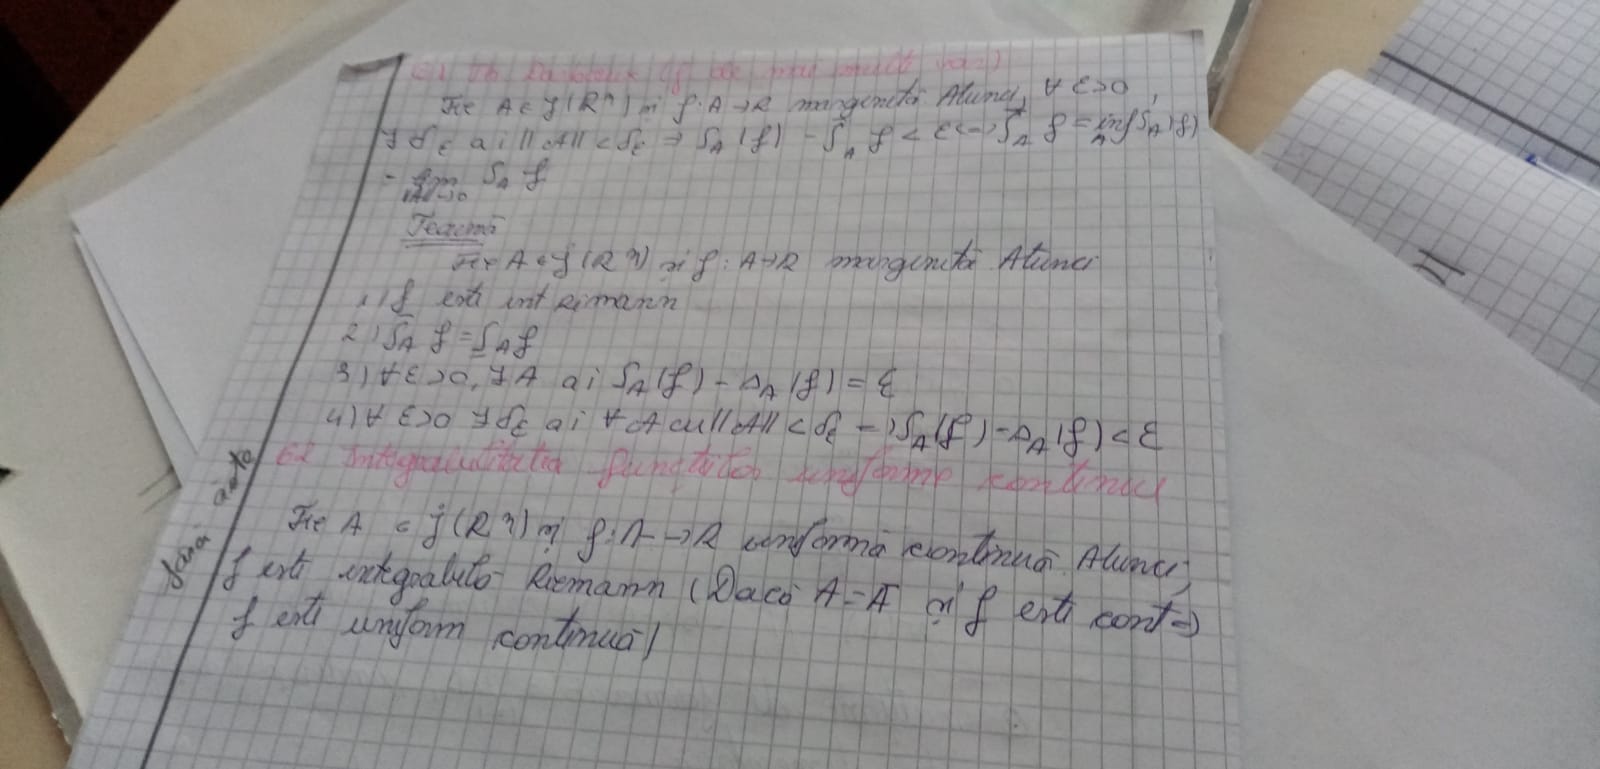 61 Th Darboux (f de mai multe var)
Fie A ∈ J(Rⁿ) și f: A→R marginită Atunci, ∀ ε>0,
∃ δ_ε a i ||A|| < δ_ε ⇒ S_A (f) - ∫̄_A f < ε <-> ∫̄_A f = inf_A S_A (f)
= lim_{||A||→0} S_A f
Teoremă
Fie A ∈ J(Rⁿ) și f: A→R marginită Atunci
1) f este int Rimann
2) ∫̄_A f = ∫̲_A f
3) ∀ ε >0, ∃ A a i S_A(f) - s_A (f) = ε
4) ∀ ε>0 ∃ δ_ε a i ∀ A cu ||A|| < δ_ε -> S_A(f) - s_A (f) < ε
62 Integrabilitatea funcțiilor uniforme continue
Fie A ∈ J(Rⁿ) și f: A→R uniformă continuă Atunci,
f este integrabilă Riemann (Dacă A = Ā și f este cont ⇒
f este uniform continuă)
fără asta